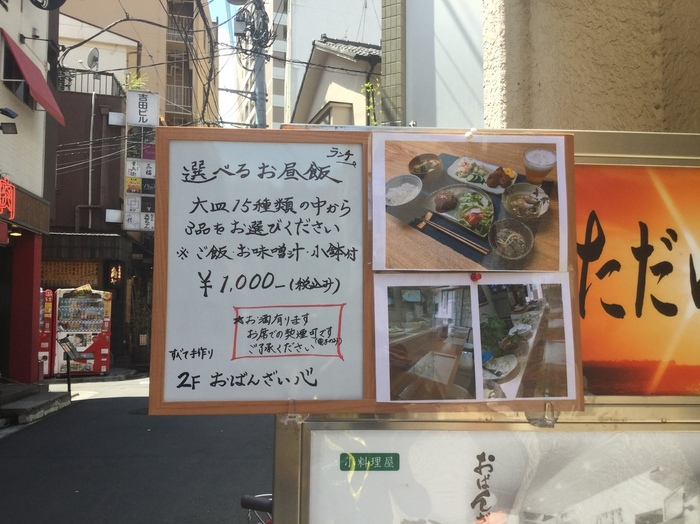 ランチ
選べるお昼飯
大皿15種類の中から
3品をお選びください
※ご飯 お味噌汁・小鉢付
¥1,000-(税込み)
★お酒有ります
お席での喫煙可です
ご了承ください
すべて手作り
2F おばんざい心
吉田ビル
ただい
小料理屋
おばんざ